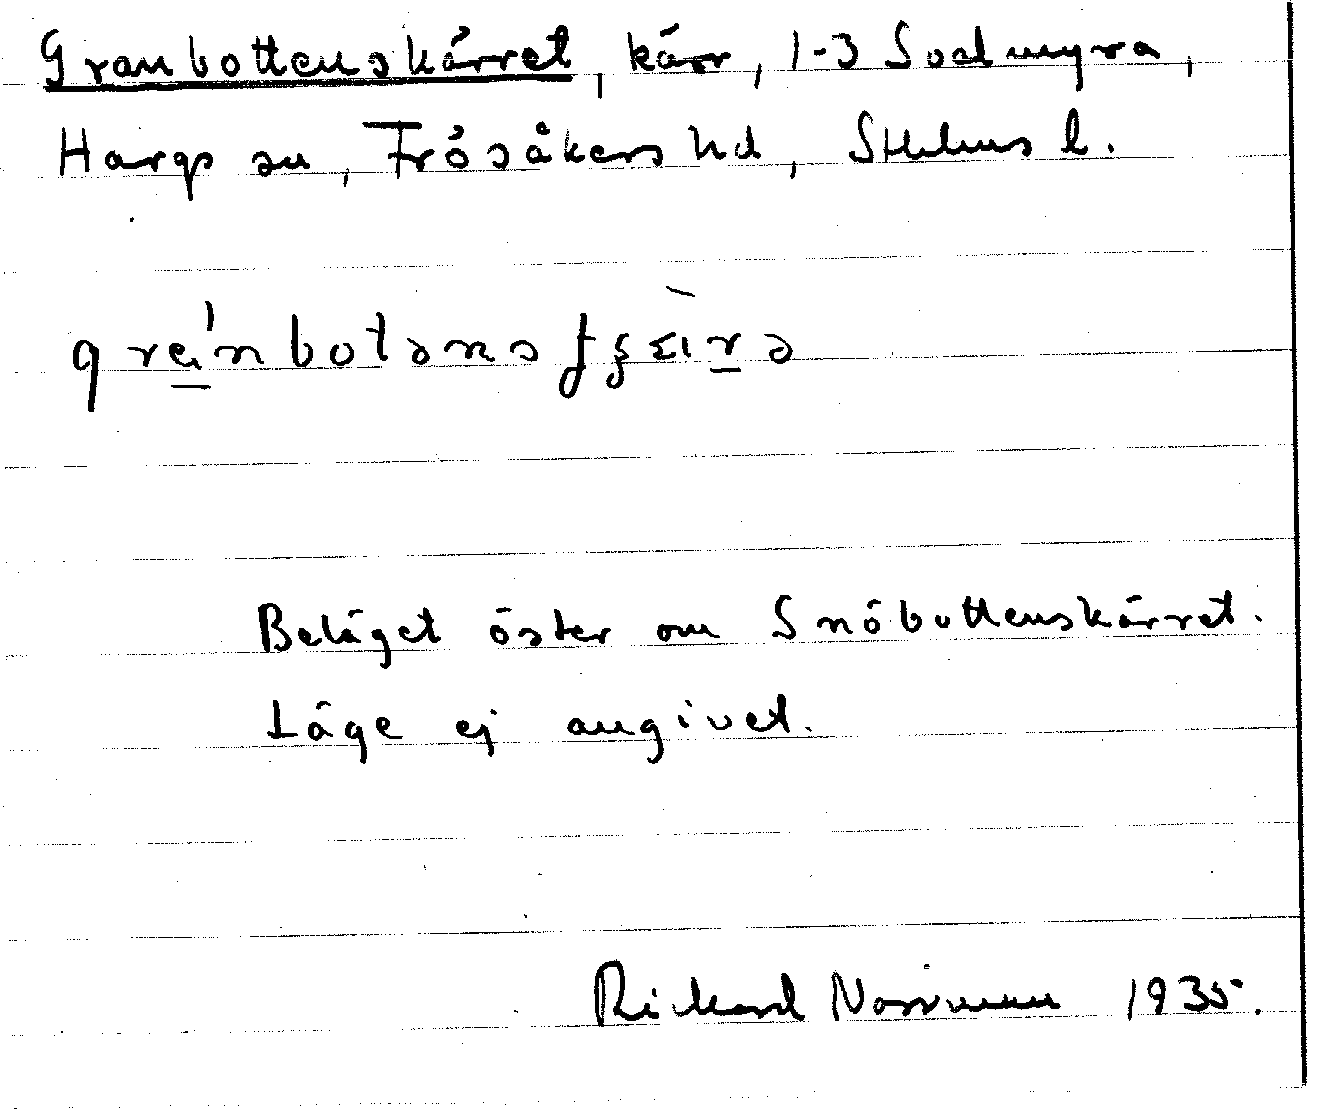 Granbottenskärret, kärr, 1-3 Sodmyra,
Hargs sn, Frösåkers hd, Sthlms l.
Beläget öster om Snöbottenskärret.
Läge ej angivet.
Rickard Norrman 1935.